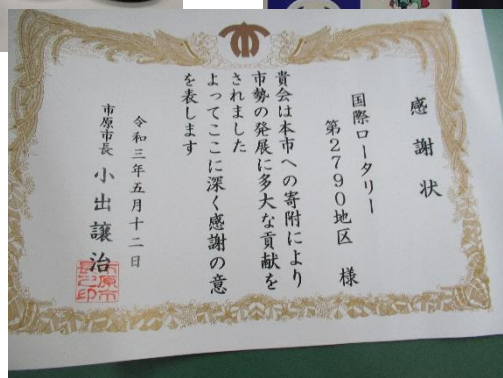 感謝状
国際ロータリー
第2790地区 様
貴会は本市への寄附により
市勢の発展に多大な貢献を
されました
よってここに深く感謝の意
を表します
令和三年五月十二日
市原市長 小出譲治
市原市
長之印